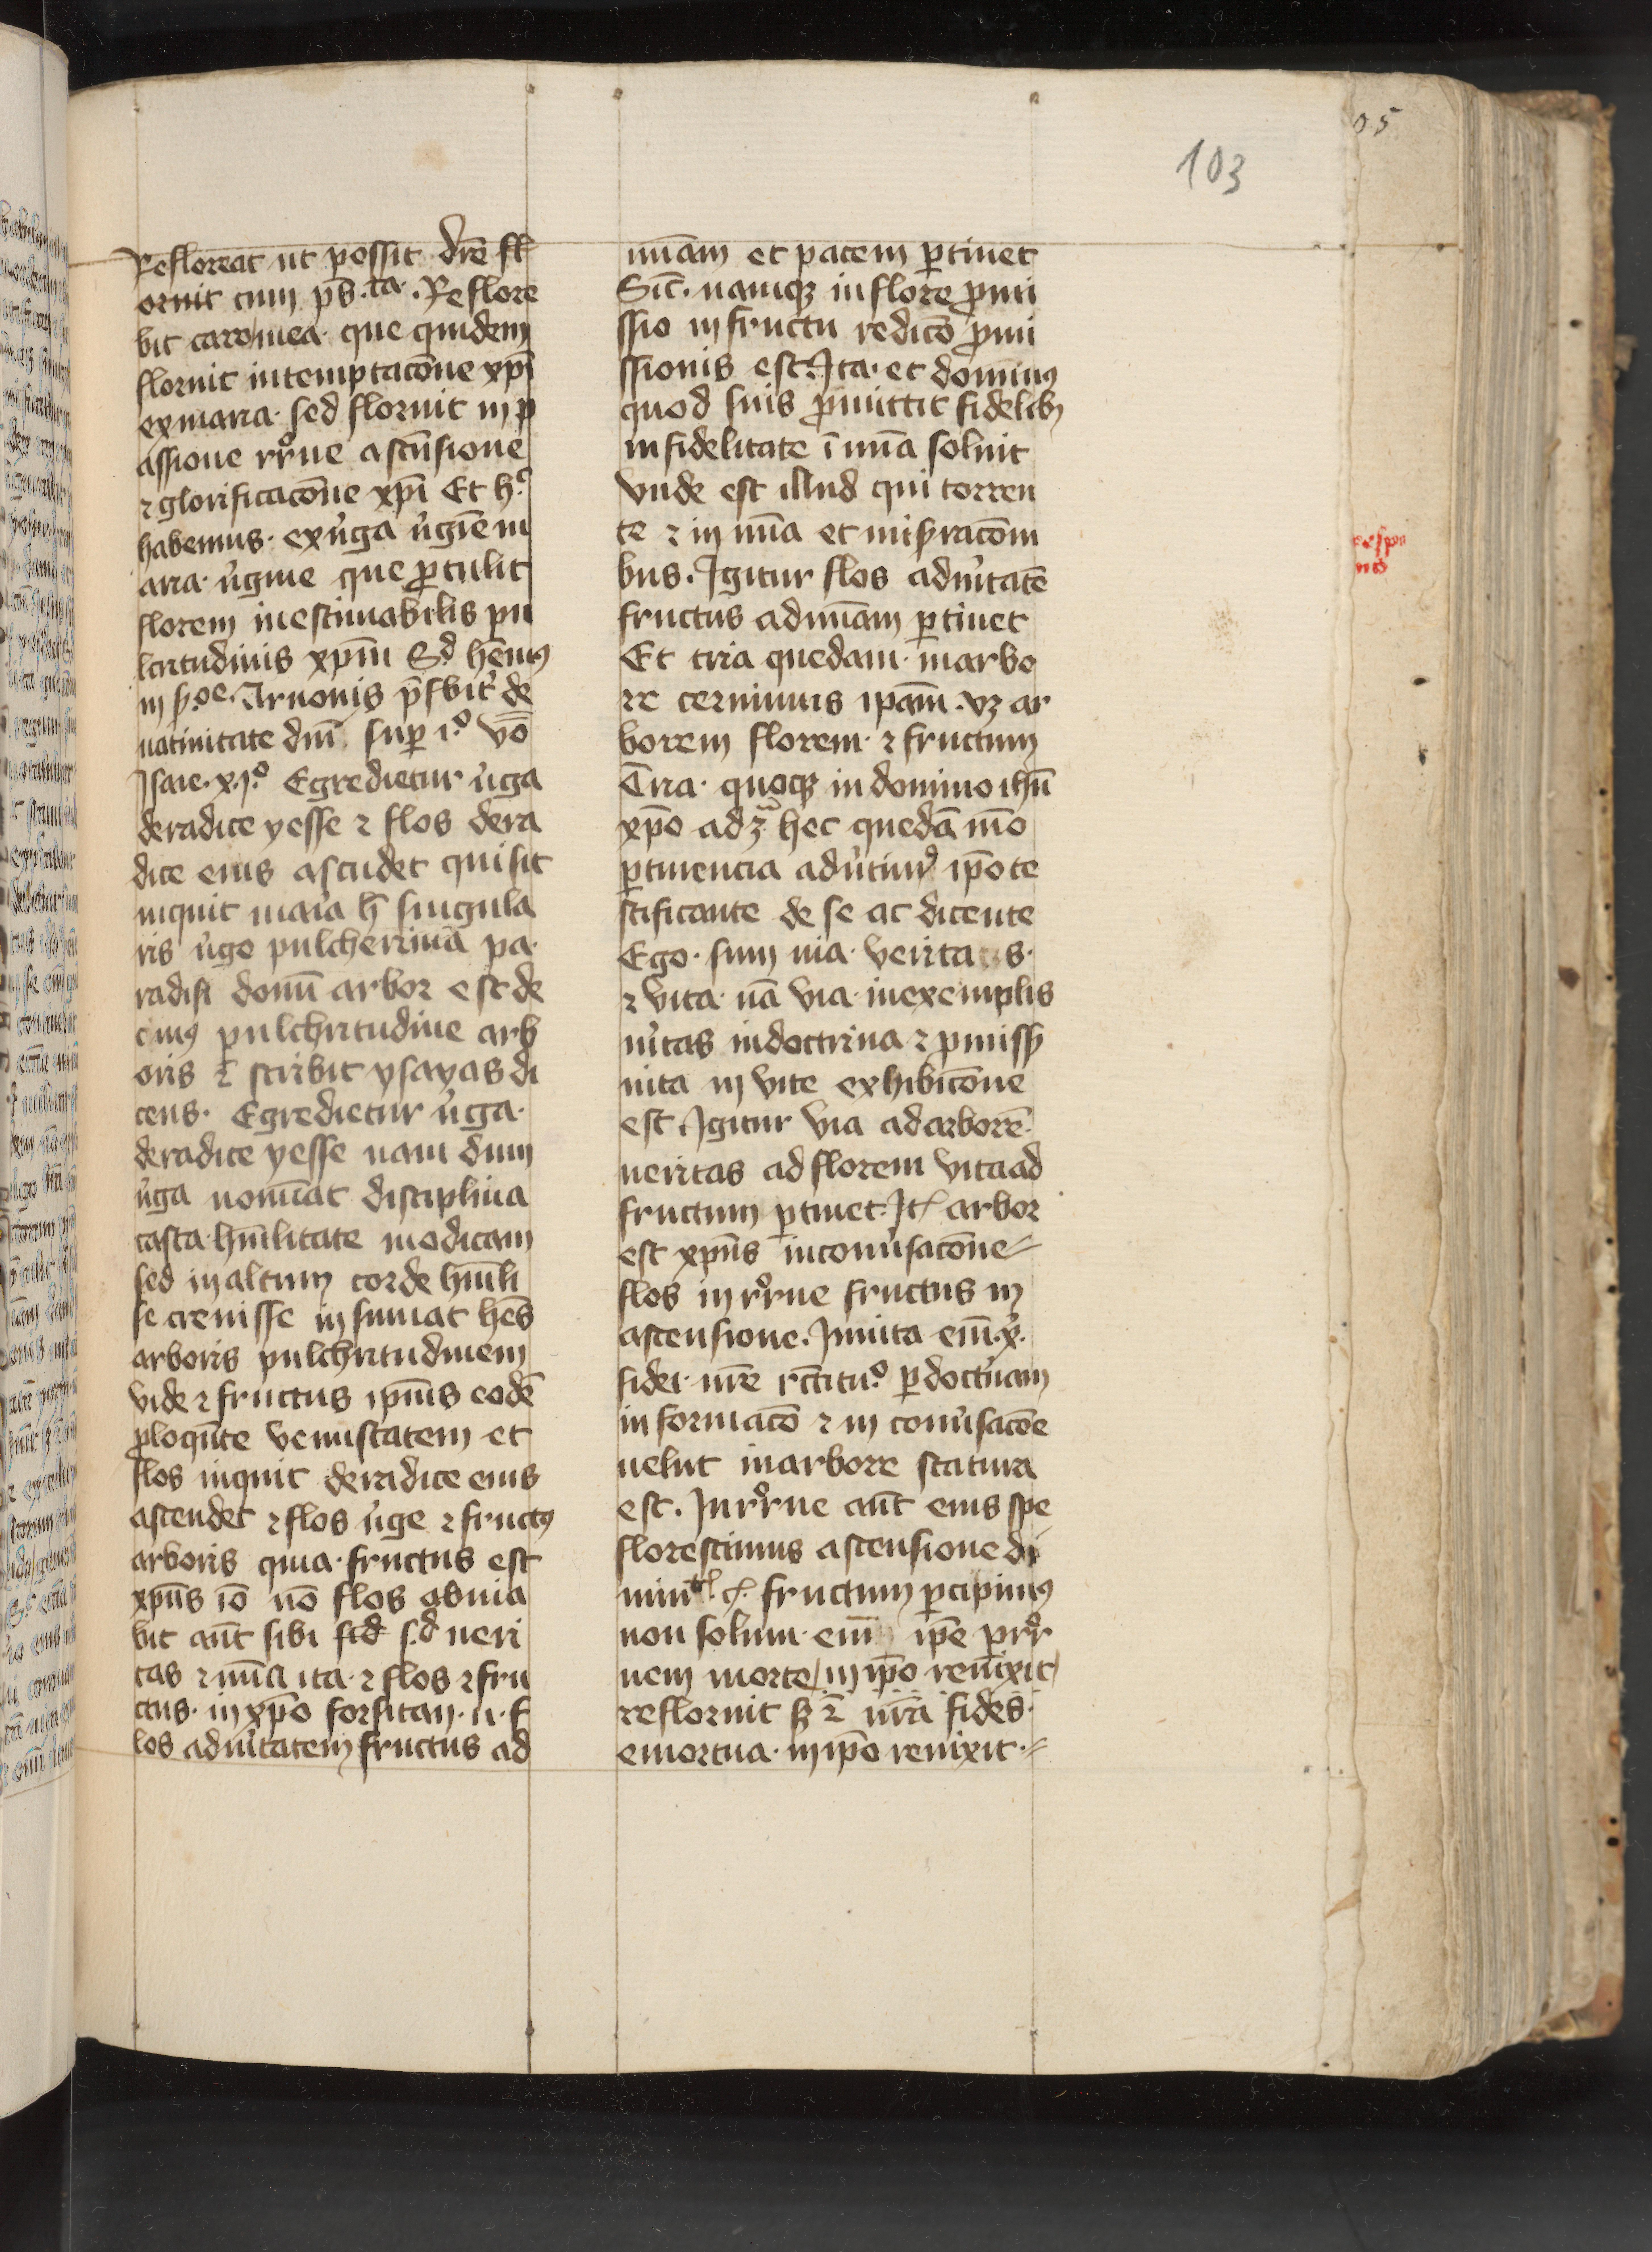 103
05
Refloreat ut possit dr̄e fl
oruit cum pb̄.ta. Reflore
bit caro mea que quidem
floruit in temptacōne xp̄i
ex maria sed floruit in p
assione rr̄ne ascn̄sione
⁊ glorificacōne xp̄i Et h.c
habemus ex u̓ga u̓gīem m
aria u̓gine que ꝓtulit
florem inestimabilis pu
lcritudinis xp̄m S.d hēmꝰ
in s.oe. Arnonis p̄sbit̓ de
natiuitate dn̄i sup i.o vō
Isaie .x.i.o Egredietur u̓ga
de radice yesse ⁊ flos de ra
dice eius ascndet qui sit
inquit maīa h̄ singula
ris u̓go pulcherrima pa
radisi domū arbor est de
cuius pulchritudine arb
oris ⁊̄ scribit ysayas di
cens. Egredietur u̓ga
de radice yesse nam dum
u̓ga nomīat disciplina
casta hūilitate modicam
sed in altum corde hūili
se creuisse insinuat hēs
arboris pulchritudinem
vide ⁊ fructus ip̄ius eodē
ꝓloqūte venustatem et
flos inquit de radice eius
ascendet ⁊ flos u̓ge ⁊ fructꝰ
arboris quia fructus est
xp̄us iō nō flos obuia
bit aūt sibi s.d ueri
tas ⁊ mīa ita ⁊ flos ⁊ fru
ctus in xp̄o forsitan .n. f
los ad ũitatem fructus ad
mīam et pacem ꝑtinet
Sic̄ namqꝫ in flore ꝓmi
ssio in fructu redicō ꝓmi
ssionis est. Ita et dominꝰ
quod suis ꝓmittit fidelibꝫ
in fidelitate ī mīa soluit
Vnde est illud qui torren
te ⁊ in mīa et misracōni
bus. Igitur flos ad ũitatē
fructus ad mīam ꝑtinet
Et tria quedam in arbo
re cernimus ip̄am .vꝫ ar
borem florem ⁊ fructum
Tria quoqꝫ in domino ihū
xp̄o ad hec quedā mō
ꝑtinencia adu̓timꝰ ip̄o te
stificante de se ac dicente
Ego sum uia veritas
⁊ vita nā via in exemplis
ũitas in doctrina ⁊ ꝓmiss
uita in vite exhibicōne
est. Igitur via ad arborē
ueritas ad florem vita ad
fructum ꝑtinet. It arbor
est xp̄us in conu̓sacōne
flos in rr̄ne fructus in
ascensione. In uita eīm .x.
fidei nr̄e ꝑ doctīnam
informacō ⁊ in conu̓sacōe
uelut in arbore statura
est. In rr̄ne aūt eius spe
florescimus ascensione di
fructum ꝑcipimꝰ
non solum eīm ip̄e
nem morte in ip̄o reuixit
refloruit sꝫ ⁊ nr̄a fides
emortua in ip̄o reuixit